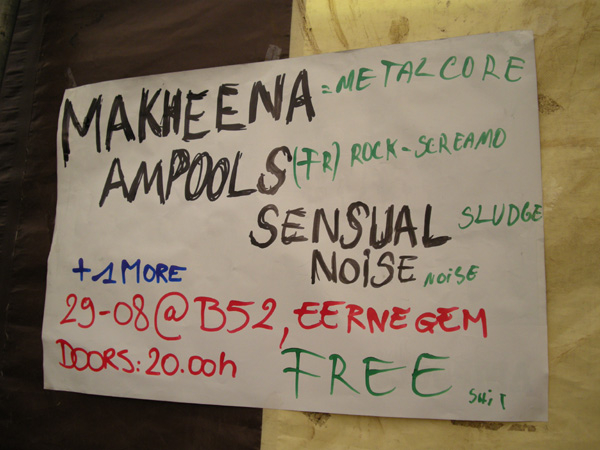 MAKHEENA = METALCORE
AMPOOLS (FR) ROCK-SCREAMO
SENSUAL SLUDGE
NOiSE NOiSE
+1 MORE
29-08@B52, EERNEGEM
DOORS: 20.00h
FREE SHiT